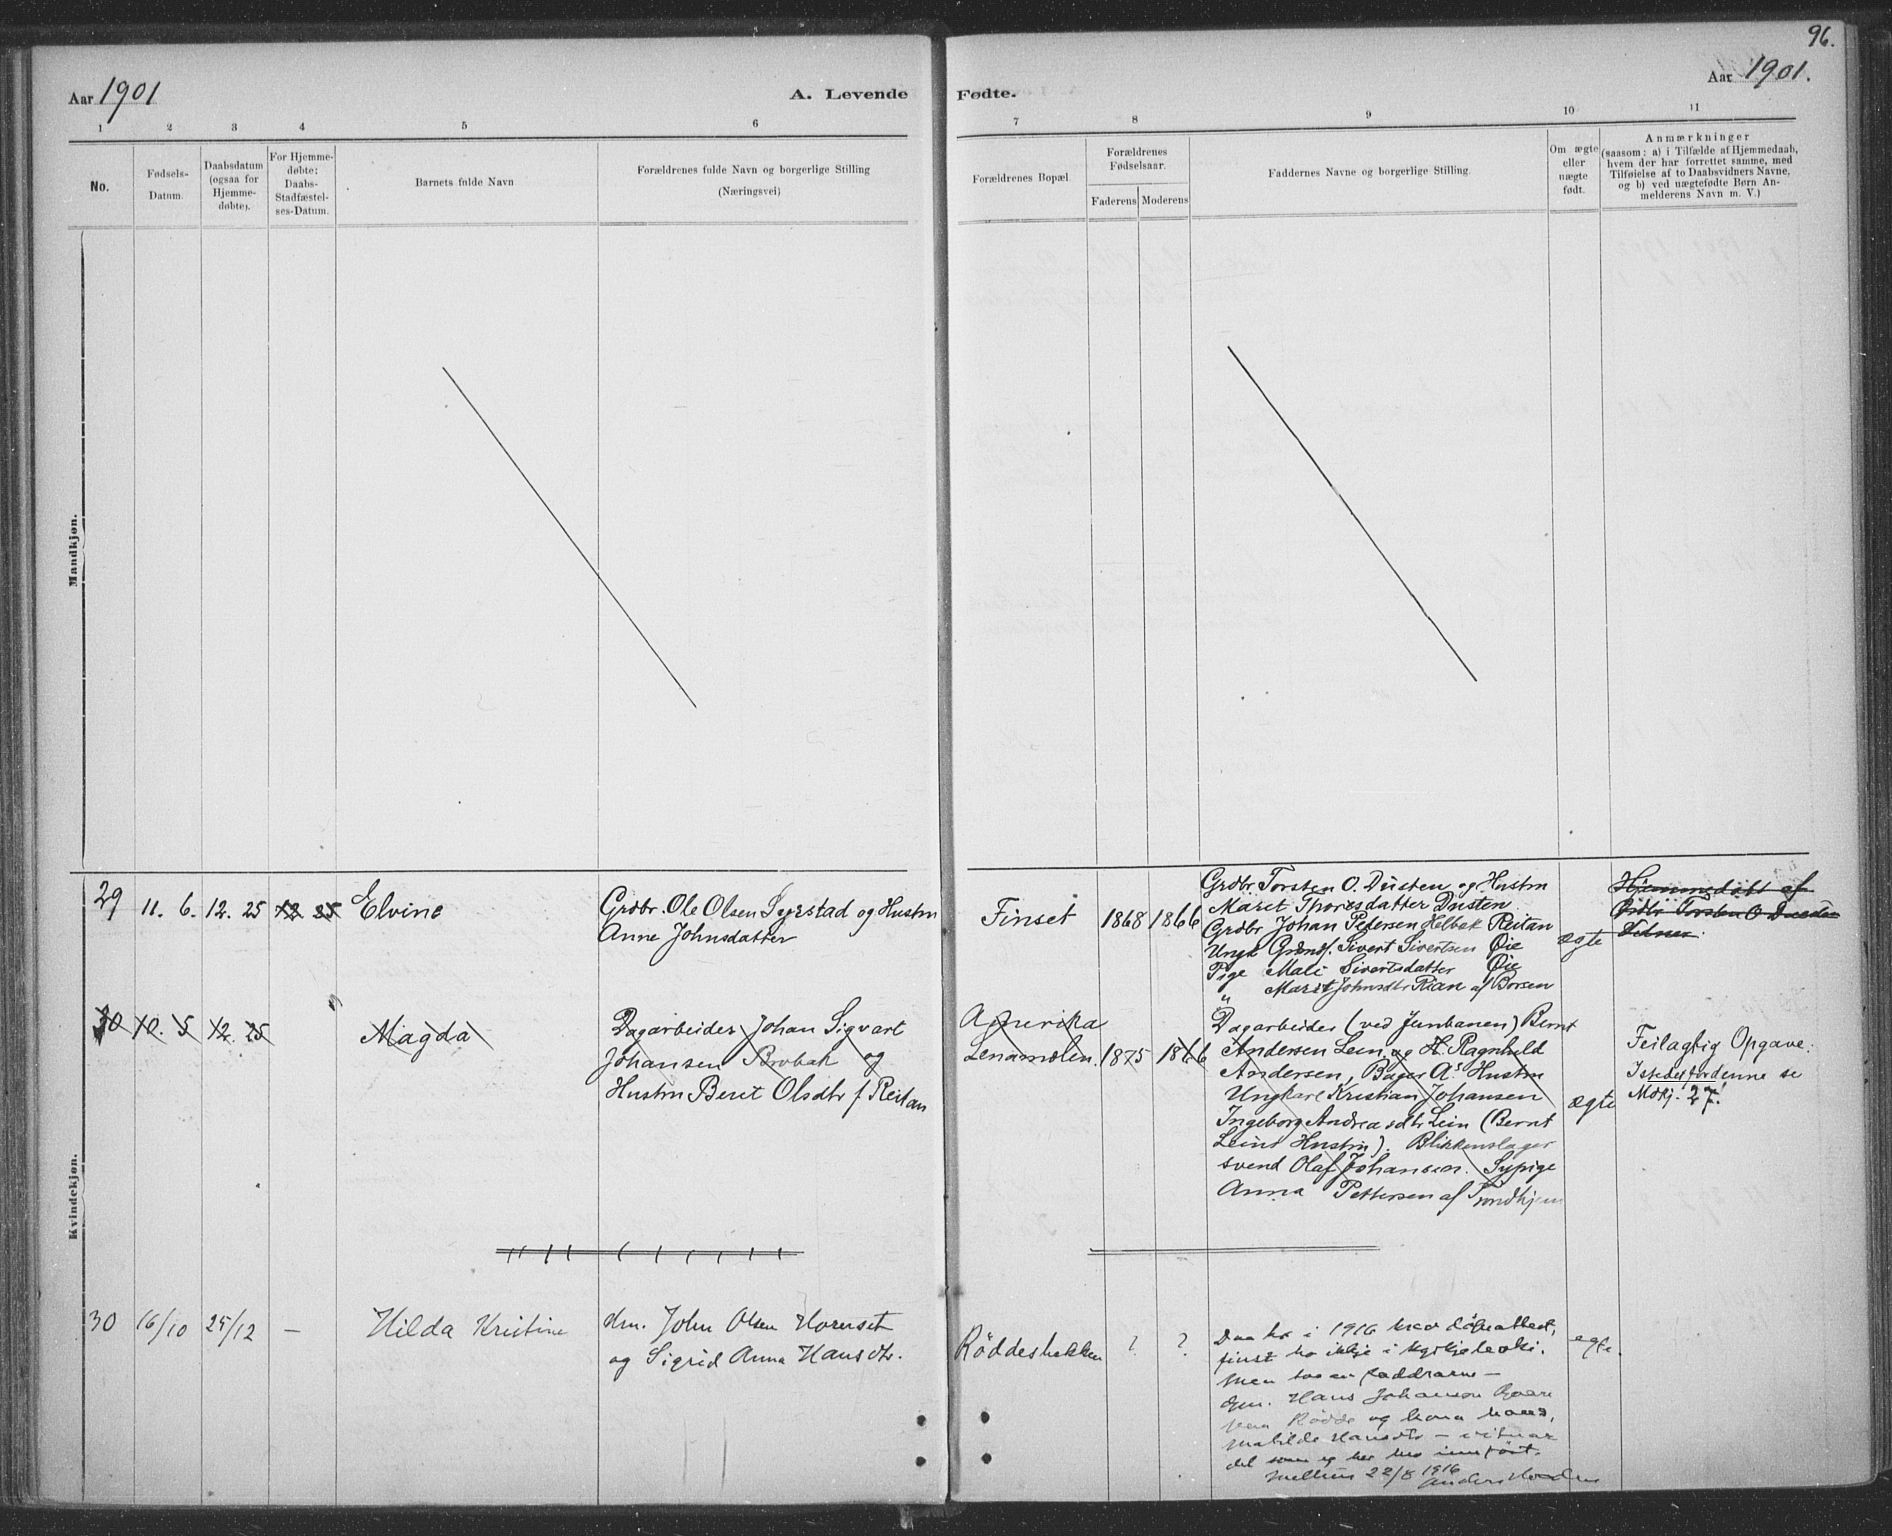 96.
Aar 1901
A. Levende
Fødte.
Aar 1901.
1 2 3 4 5 6
7 8 9 10 11
No.
Fødsels-
Datum.
Daabsdatum
(ogsaa for
Hjemme-
døbte).
For Hjemme-
døbte:
Daabs-
Stadfæstel-
ses-Datum.
Barnets fulde Navn
Forældrenes fulde Navn og borgerlige Stilling
(Næringsvei)
Forældrenes Bopæl.
Forældrenes
Fødselsaar.
Faderens
Moderens
Faddernes Navne og borgerlige Stilling.
Om ægte
eller
uægte
født.
Anmærkninger
(saasom: a) i Tilfælde af Hjemmedaab,
hvem der har forrettet samme, med
Tilføielse af to Daabsvidners Navne,
og b) ved uægtefødte Børn An-
melderens Navn m. V.)
Mandkjøn.
Kvindekjøn.
29 11. 6. 12. 25 12 25 Elvine
Grdbr. Ole Olsen Syrstad og Hustru
Anne Johnsdatter
Finset 1868 1866
Grdbr Torsten O. Dusten og Hustru
Maret Thoresdatter Dusten.
Grdbr Johan Pedersen Helbak Reitan
Ungk Grdmds. Sivert Sivertsen Øie
Pige Mali Sivertsdatter Øie
" Marit Johnsdtr Rian af Børsen
ægte
Hjemmedøbt af
Grdbr Torsten O Dusten
30 10. 5 12. 25 Magda
Dagarbeider Johan Sigvart
Johansen Brobak og
Hustru Berit Olsdtr f. Reitan
Amerika
Lenamoelen. 1875 1866
Dagarbeider (ved Jernbanen) Bernt
Andersen Lein og H. Ragnhild
Andersen, Bager A's Hustru
Ungkarl Kristian Johansen
Ingeborg Andreasdtr Lein (Bernt
Leins Hustru). Blikkenslager
svend Olaf Johansen. Sypige
Anna Pettersen af Trondhjem
ægte
Feilagtig Opgave.
Istedetfor denne se
Mdkj. 27.
30 16/10 25/12 — Hilda Kristine
John Olsen Horvset
og Sigrid Anna Hansdtr.
Røddesbakken ? ? egte.
i 1916 krav dåpsattest,
finst ho ikkje i kyrkjeboki.
Men faddrarne –
Hans Johanson
fraa Rødde og kona hans,
Matilde Hansdtr – vitnar
det som eg her har innført.
Melhus 22/8 1916